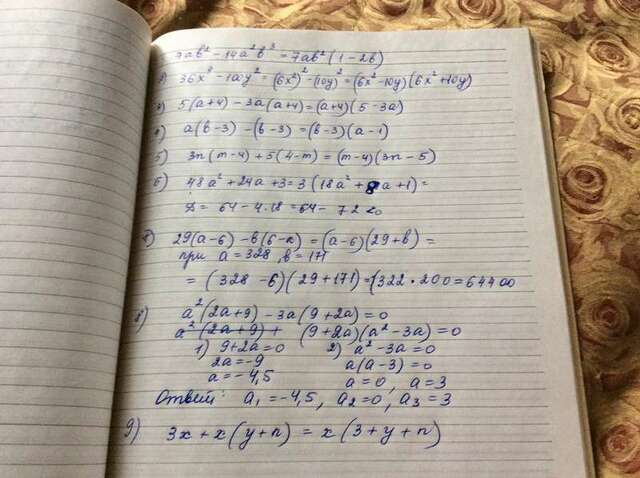 7ab² - 14a²b³ = 7ab²(1 - 2b)
2) 36x⁸ - 100y² = (6x²)² - (10y)² = (6x² - 10y)(6x² + 10y)
3) 5(a+4) - 3a(a+4) = (a+4)(5 - 3a)
4) a(b-3) - (b-3) = (b-3)(a-1)
5) 3n(m-4) + 5(4-m) = (m-4)(3n-5)
6) 48a² + 24a + 3 = 3(18a² + 8a + 1) =
D = 64 - 4·18 = 64 - 72 < 0
29(a-6) - b(6-a) = (a-6)(29+b) =
при a = 328, b = 171
= (328 - 6)(29 + 171) = 322 · 200 = 64400
8) a²(2a+9) - 3a(9+2a) = 0
a²(2a+9) + (9+2a)(a² - 3a) = 0
1) 9+2a = 0 2) a² - 3a = 0
2a = -9 a(a-3) = 0
a = -4,5 a = 0, a = 3
Ответ: a₁ = -4,5, a₂ = 0, a₃ = 3
9) 3x + x(y+n) = x(3 + y + n)